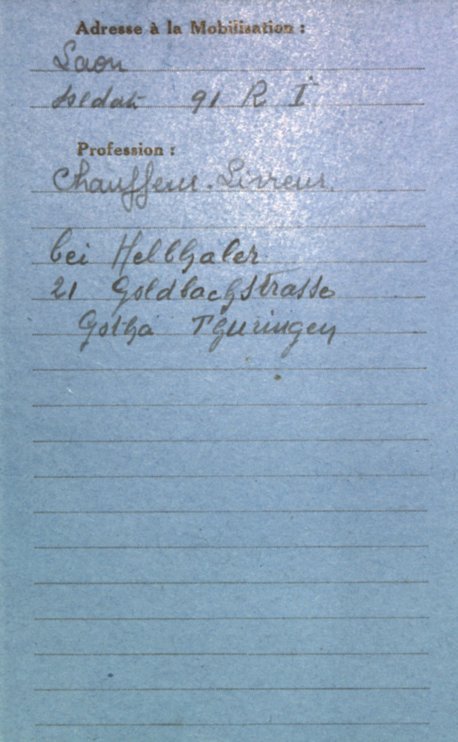 Adresse à la Mobilisation :
Laon
soldat 91 R I
Profession :
Chauffeur-Livreur.
bei Helbhaler
21 Goldbachstrasse
Gotha Thuringen